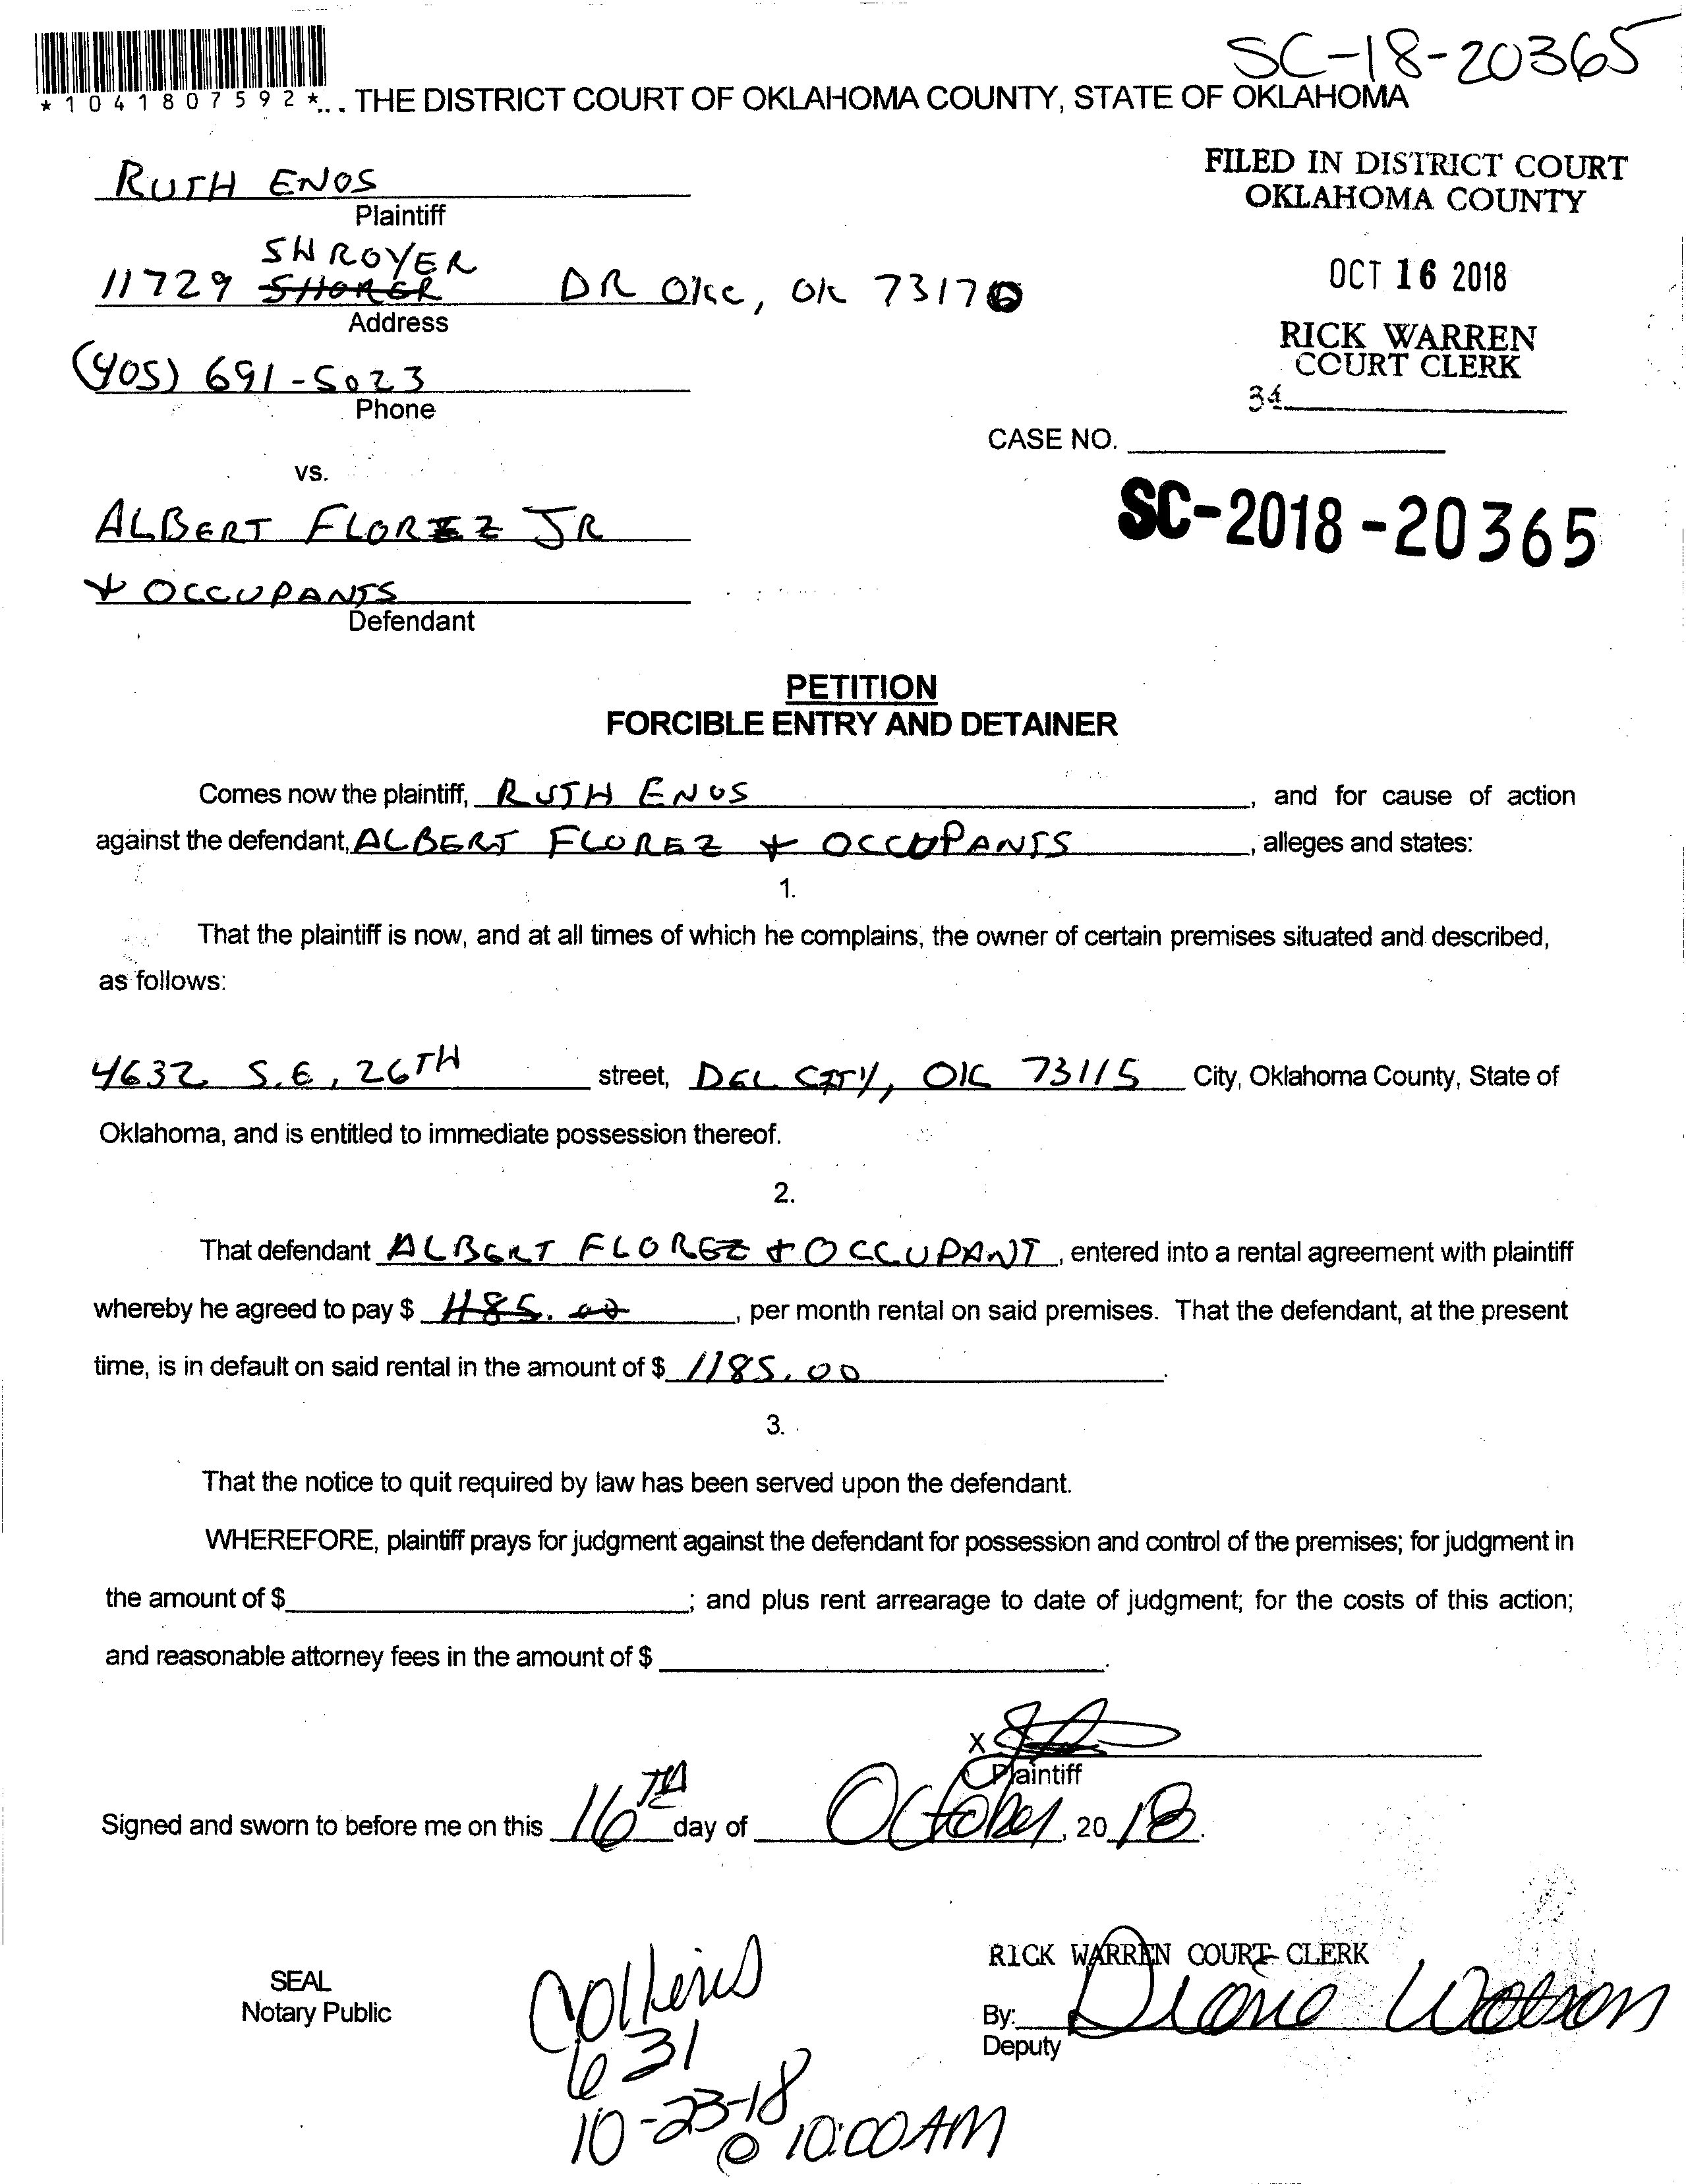 SC-18-20365
*1041807592*... THE DISTRICT COURT OF OKLAHOMA COUNTY, STATE OF OKLAHOMA
FILED IN DISTRICT COURT
OKLAHOMA COUNTY
RUTH ENOS
Plaintiff
SHROYER
OCT 16 2018
11729 SHORER DR OKC, OK 73170
Address
RICK WARREN
COURT CLERK
(405) 691-5023
Phone
34
CASE NO.
vs.
SC-2018-20365
ALBERT FLOREZ JR
+ OCCUPANTS
Defendant
PETITION
FORCIBLE ENTRY AND DETAINER
Comes now the plaintiff, RUTH ENOS, and for cause of action
against the defendant, ALBERT FLOREZ + OCCUPANTS, alleges and states:
1.
That the plaintiff is now, and at all times of which he complains, the owner of certain premises situated and described,
as follows:
4632 S.E. 26TH street, DEL CITY, OK 73115 City, Oklahoma County, State of
Oklahoma, and is entitled to immediate possession thereof.
2.
That defendant ALBERT FLOREZ + OCCUPANT, entered into a rental agreement with plaintiff
whereby he agreed to pay $ 1185.00, per month rental on said premises. That the defendant, at the present
time, is in default on said rental in the amount of $ 1185.00.
3.
That the notice to quit required by law has been served upon the defendant.
WHEREFORE, plaintiff prays for judgment against the defendant for possession and control of the premises; for judgment in
the amount of $ ; and plus rent arrearage to date of judgment; for the costs of this action;
and reasonable attorney fees in the amount of $ .
X
Plaintiff
Signed and sworn to before me on this 16TH day of October, 2018.
RICK WARREN COURT CLERK
SEAL
Notary Public
By: Diane Watson
Deputy
631
10-23-18
@ 10:00 AM